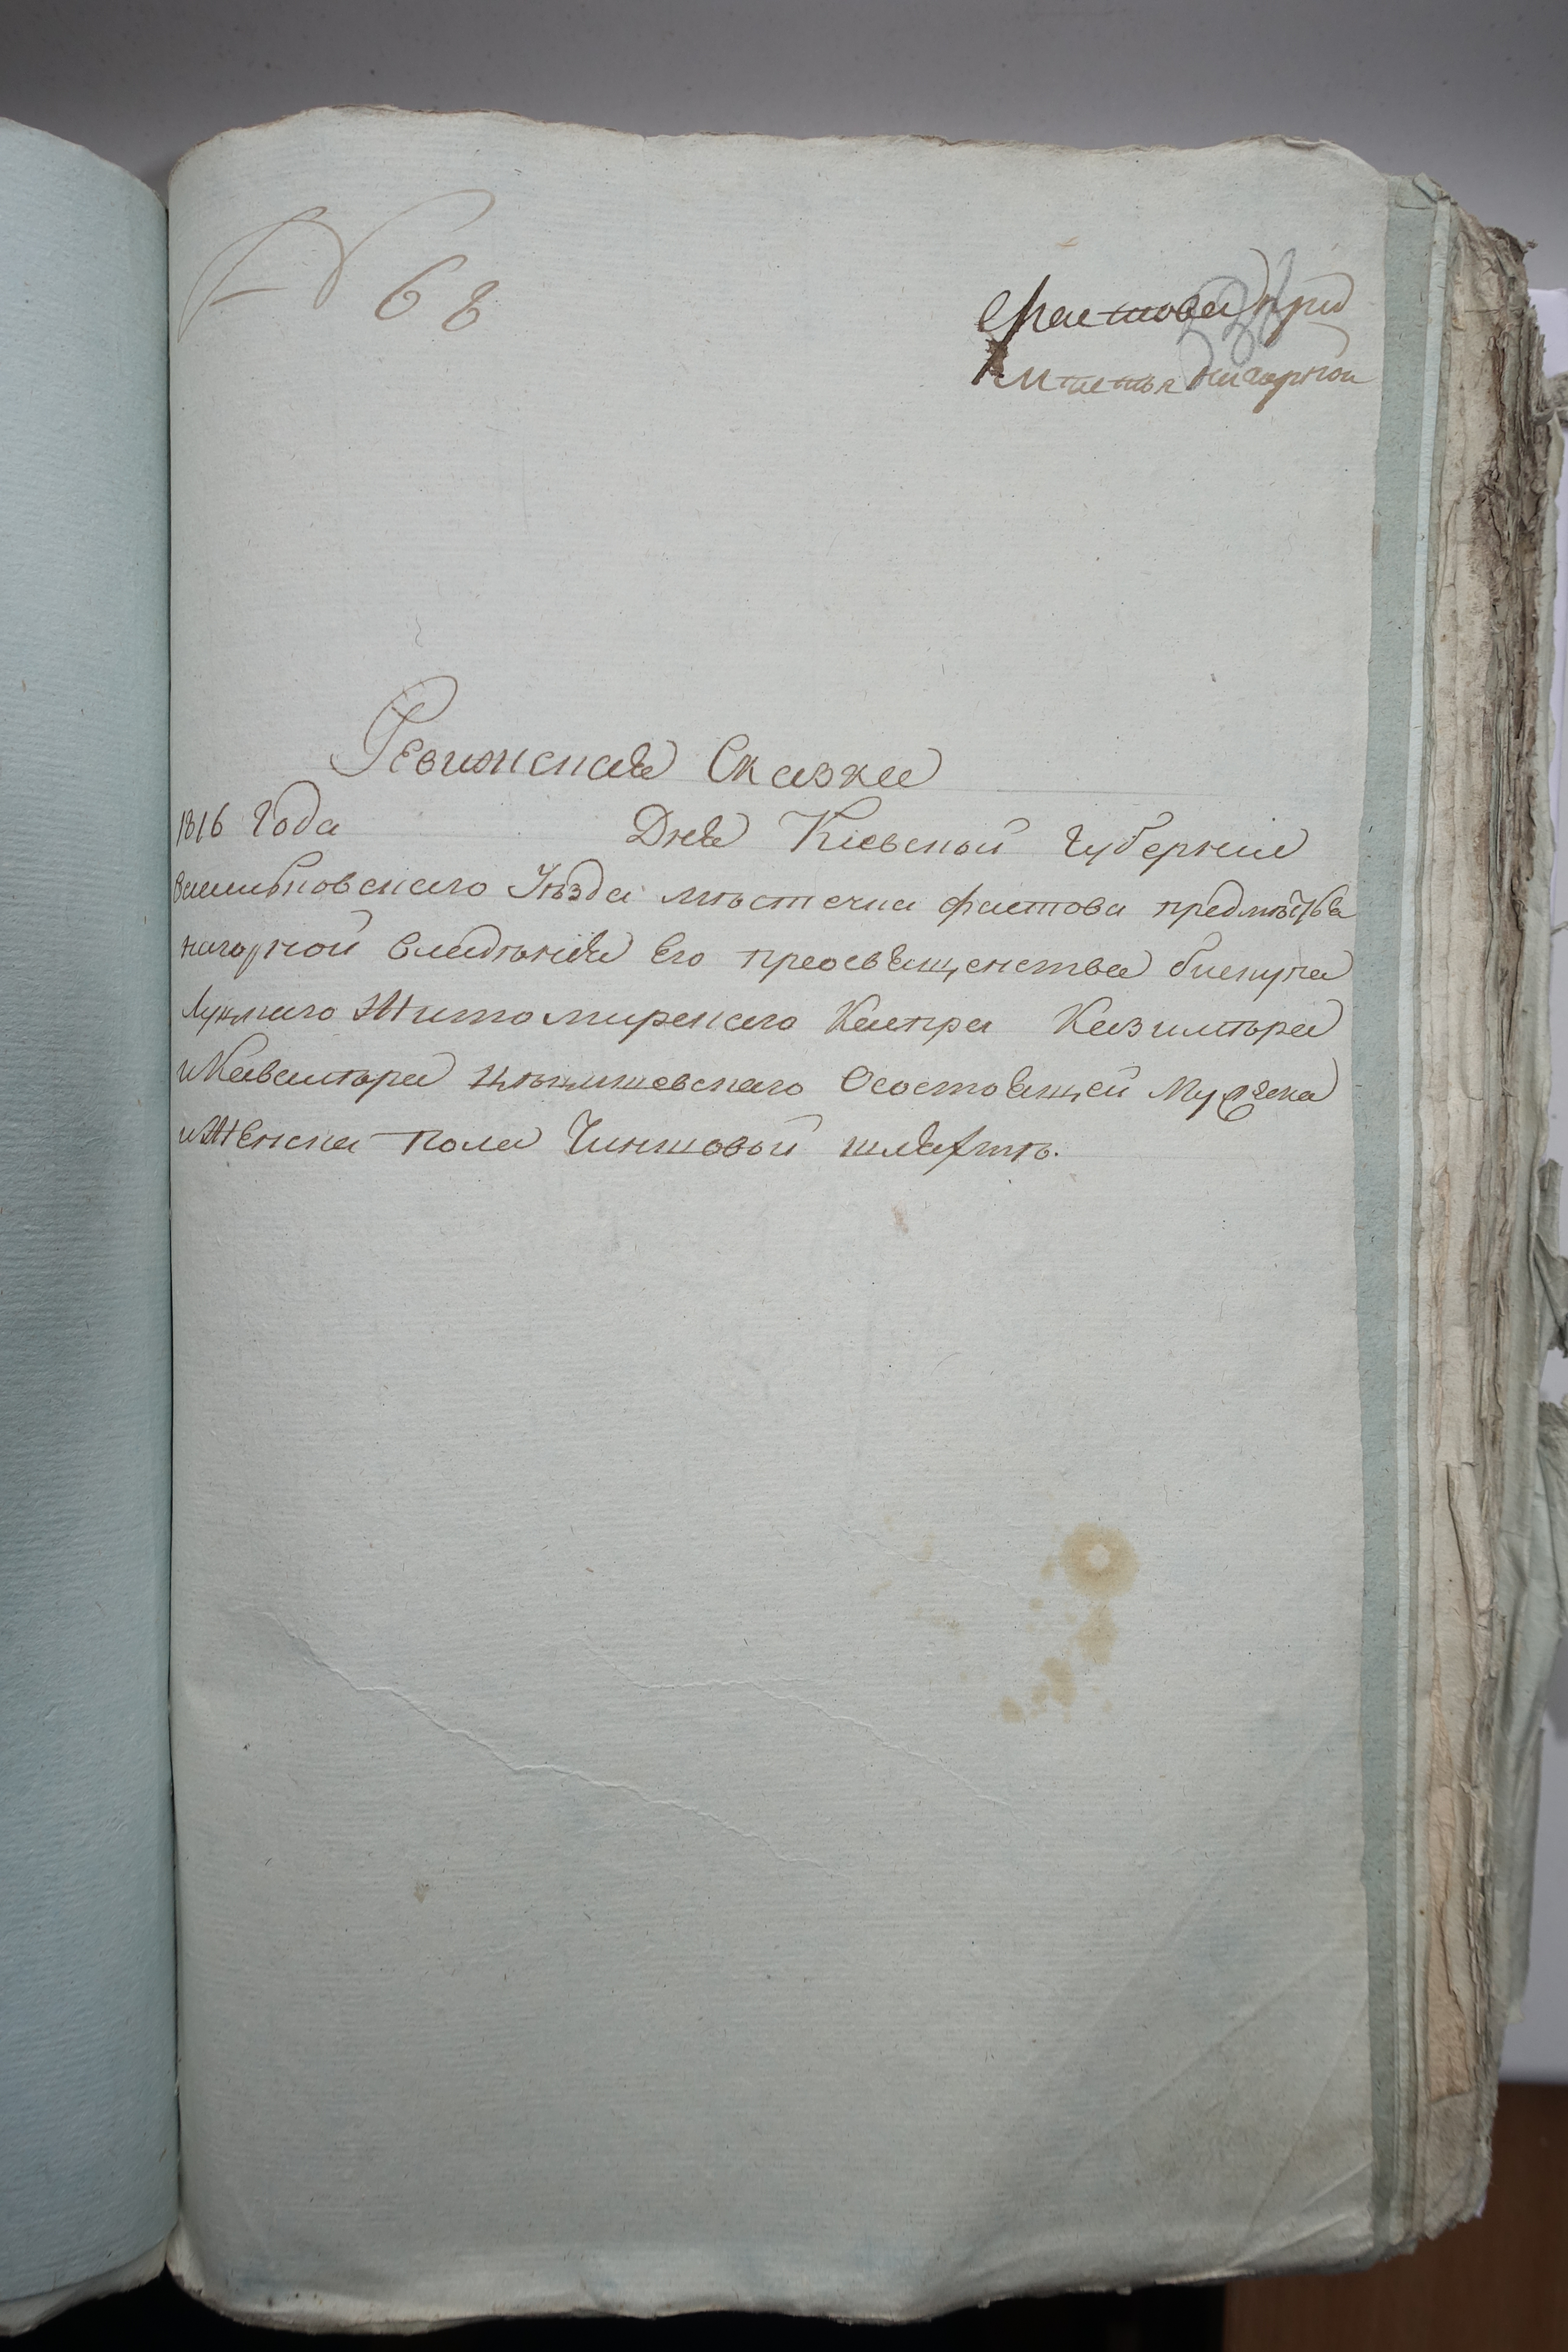 № 68
Фастова при
Мѣстья нагорной
Ревизская Сказка
1816 Года Дня Кіевской Губерніи
Васильковскаго Уѣзда мѣстечка фастова предмѣстья
нагорной владѣнія Его преосвященства бискупа
Луцкаго Житомирскаго Каспра Казимѣра
Цѣцишевскаго Осостоящей Мужеска
и Женска пола Чиншовой шляхтѣ.